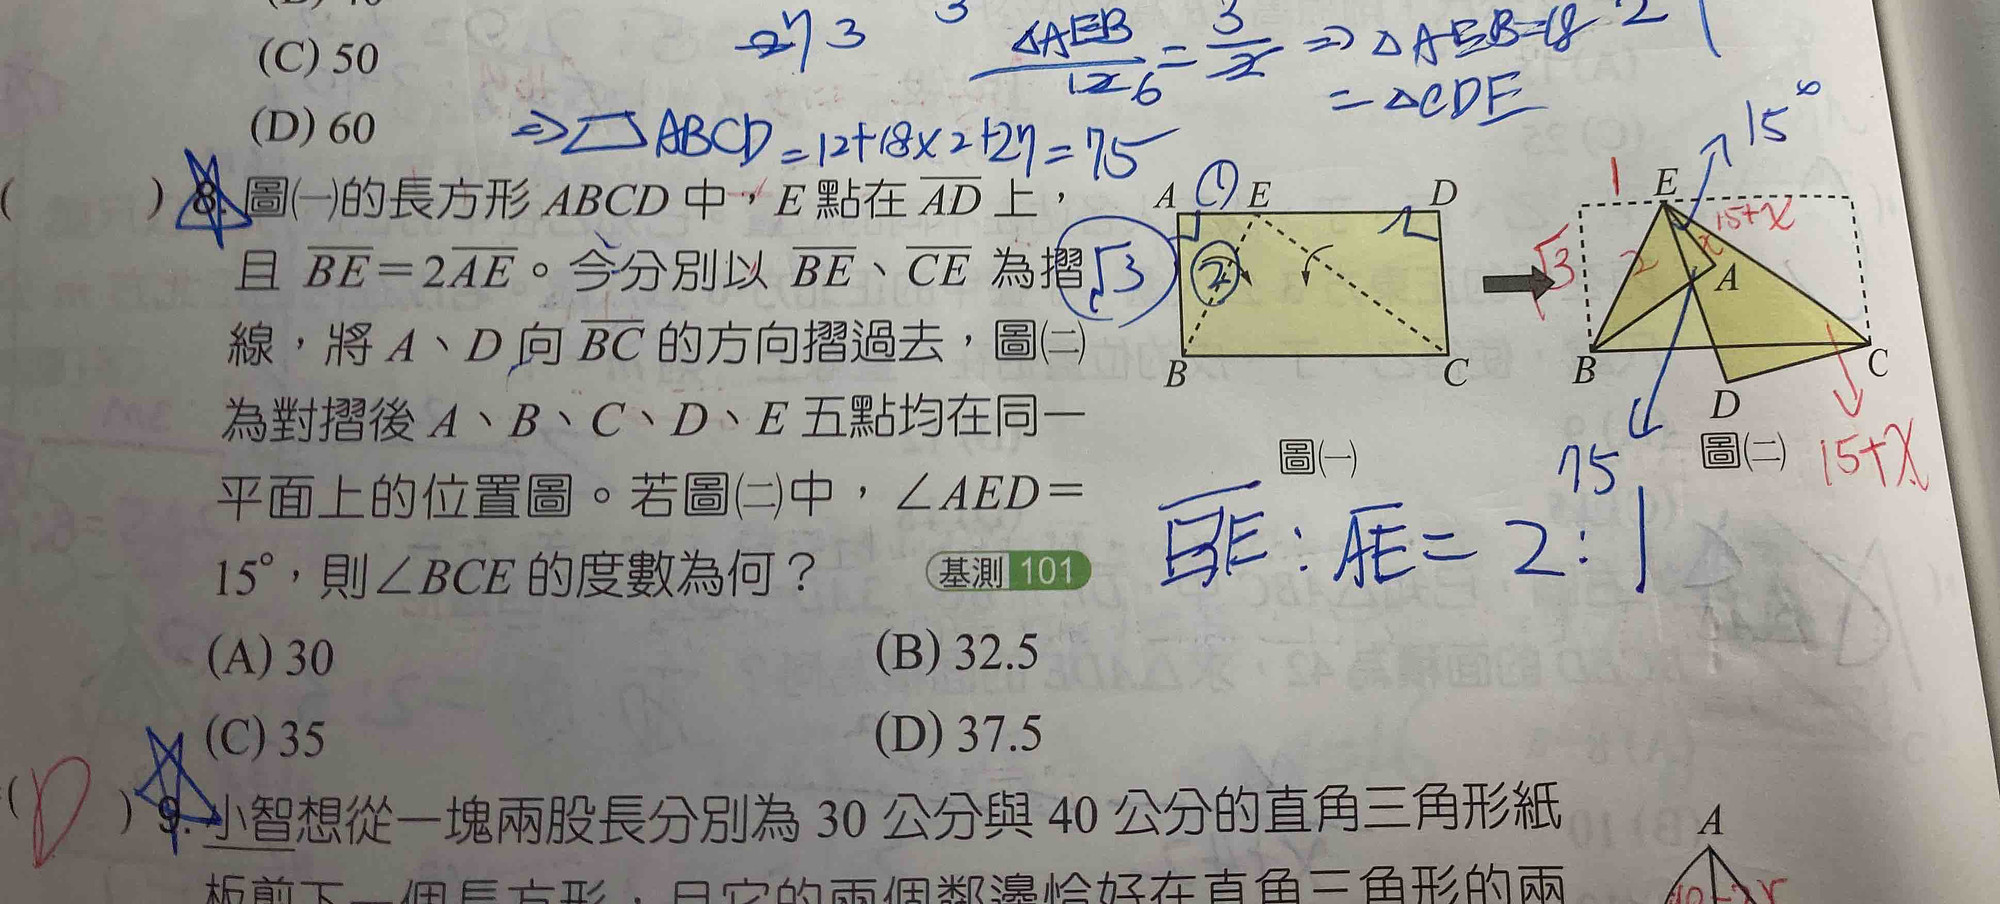 (C) 50
(D) 60
3
-27 3
△AEB/12 6 = 3/2 ⇒ △AEB=18
= △CDE
⇒ ▱ABCD = 12+18×2+27=75
( ) 8. 圖㈠的長方形 ABCD 中，E 點在 AD 上，
且 BE＝2AE。今分別以 BE、CE 為摺
線，將 A、D 向 BC 的方向摺過去，圖㈡
為對摺後 A、B、C、D、E 五點均在同一
平面上的位置圖。若圖㈡中，∠AED＝
15°，則∠BCE 的度數為何？ 基測 101
(A) 30 (B) 32.5
(C) 35 (D) 37.5
A 1 E D
√3 2
B C
圖㈠
15°
1 E
√3 2 x 15+x
A
B C
D
75 圖㈡ 15+x
BE : AE = 2 : 1
( D ) 9. 小智想從一塊兩股長分別為 30 公分與 40 公分的直角三角形紙
板剪下一個長方形，且它的兩個鄰邊恰好在直角三角形的兩
A